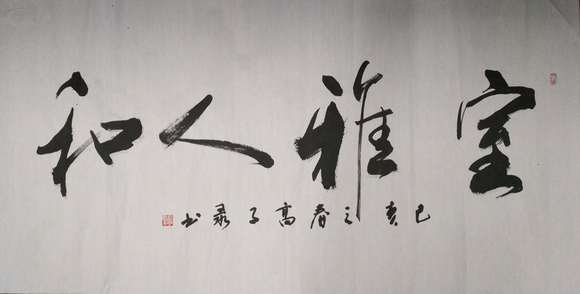 室雅人和
己亥之春高子书